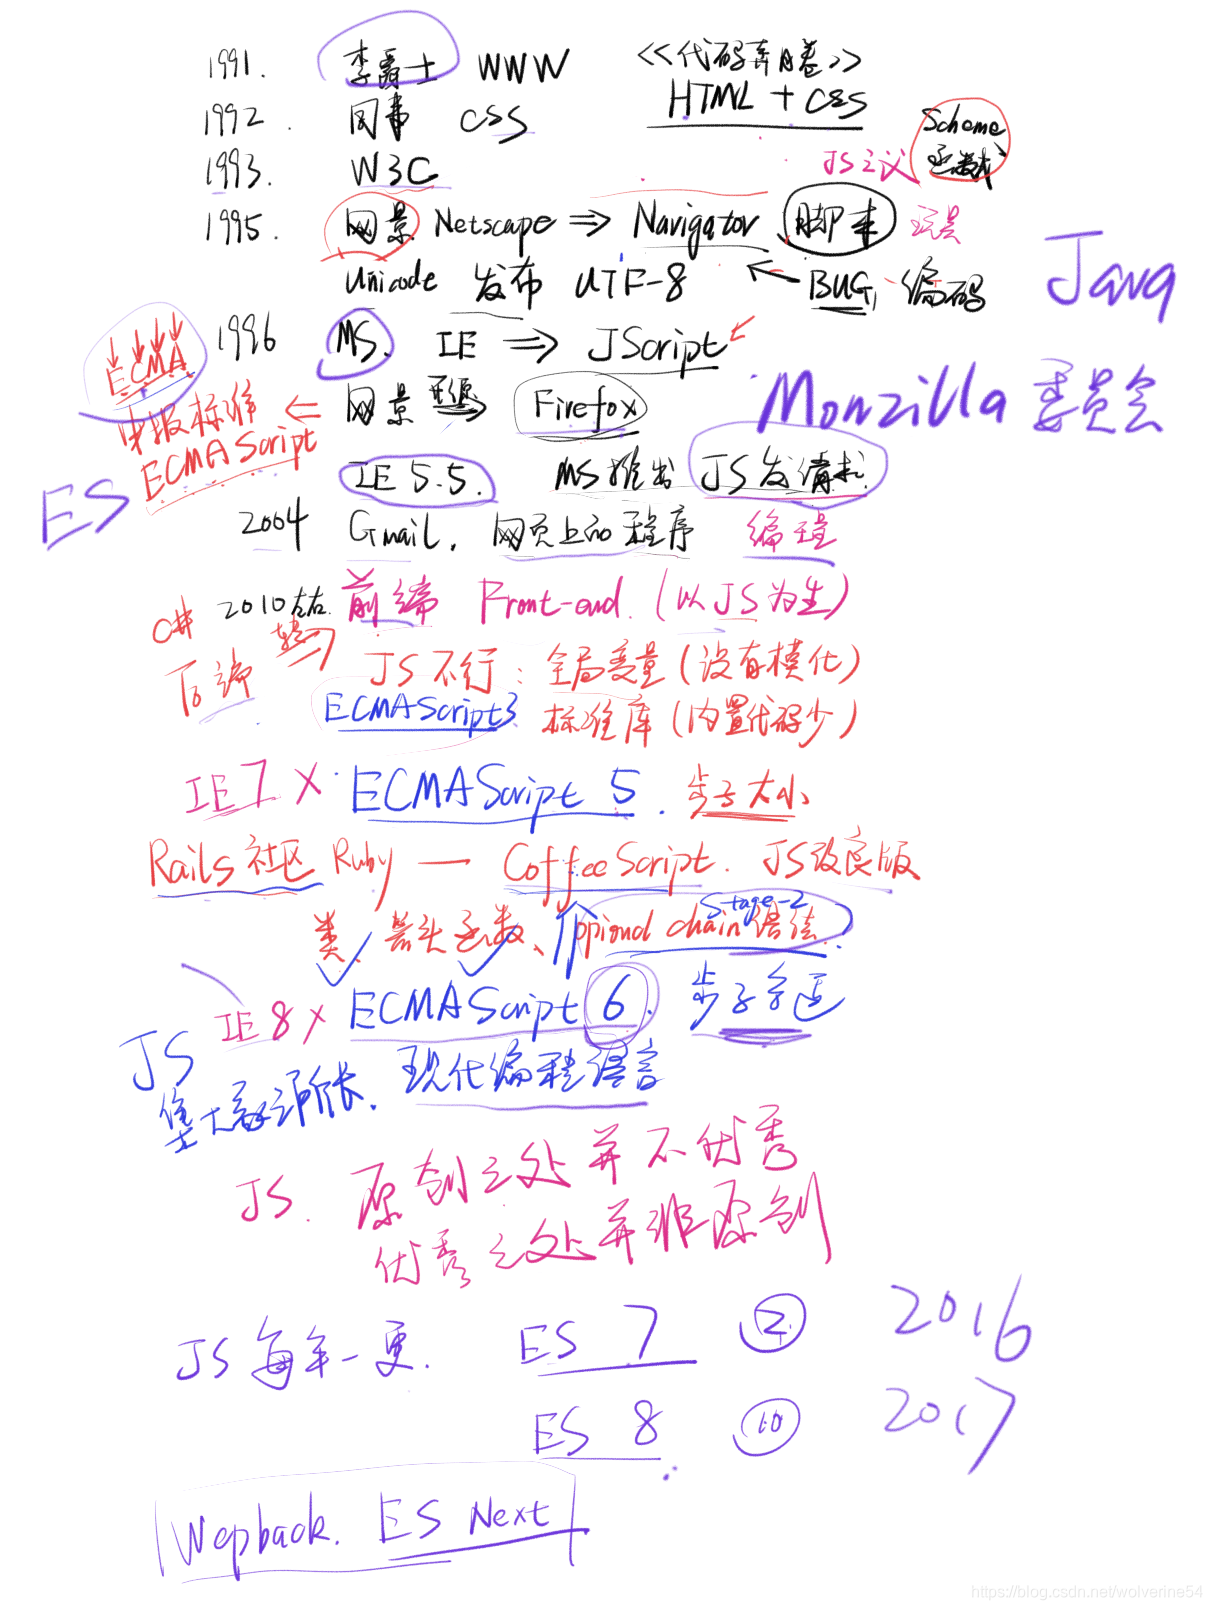 1991. 李爵士 WWW 《代码奔月卷》
HTML + CSS
1992. 同事 CSS
Scheme
函数式
1993. W3C
JS之父
1995. 网景 Netscape ⇒ Navigator 脚本 玩具
Unicode 发布 UTF-8 ← BUG, 编码
Java
1996 MS. IE ⇒ JScript
ECMA
网景 → Firefox
Monzilla 委员会
申报标准
ECMAScript
ES
IE 5.5. MS推出 JS发请求
2004 Gmail. 网页上的程序 编程
C# 2010左右 前端 Front-end. (以JS为生)
转
JS不行: 全局变量 (没有模化)
ECMAScript3 标准库 (内置代码少)
IE7 X ECMAScript 5. 步子太小
Rails社区 Ruby — CoffeeScript. JS改良版
Stage-2
类、箭头函数、ppional chain语法
IE 8 X ECMAScript 6. 步子合适
JS
集大家之所长. 现代编程语言
JS. 原创之处并不优秀
优秀之处并非原创
JS 每年一更. ES 7 2. 2016
ES 8 10 2017
Wepback. ES Next
https://blog.csdn.net/wolverine54